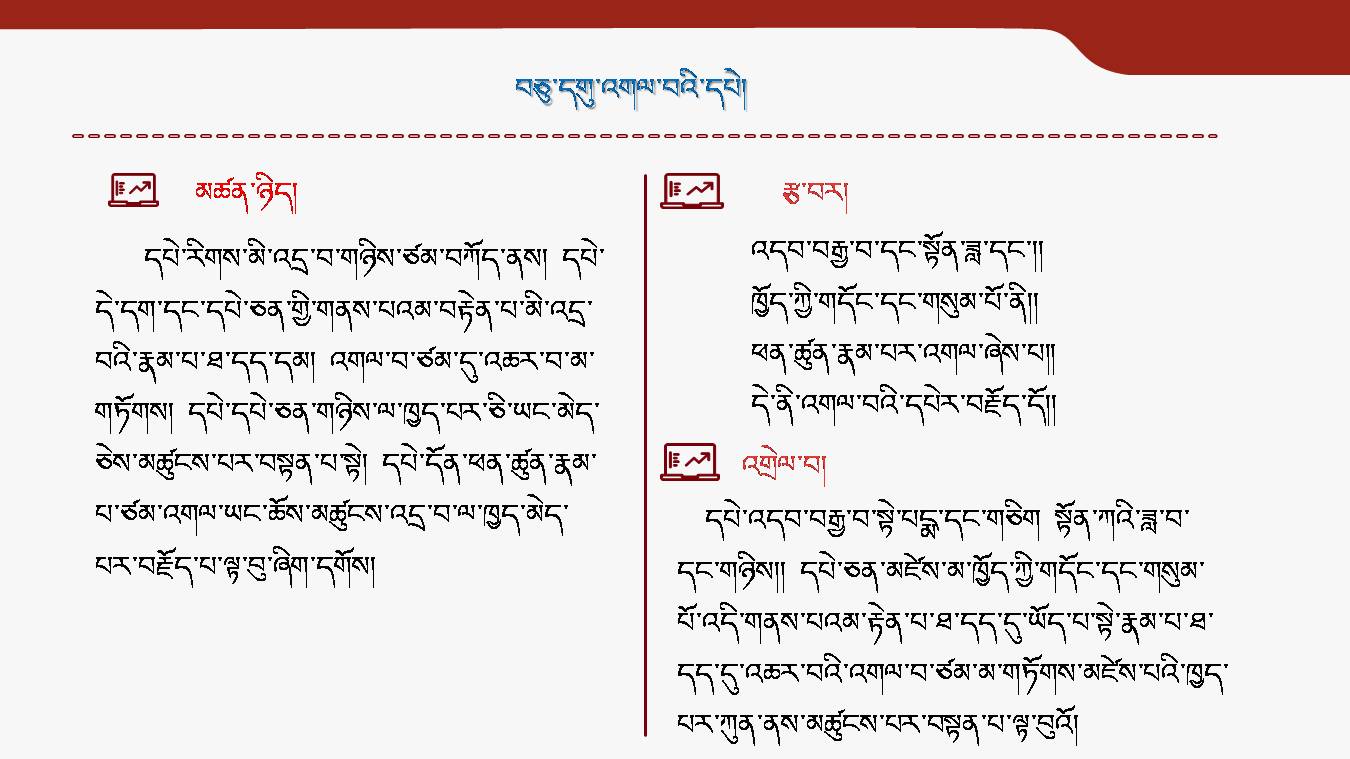 བཅུ་དགུ་འགལ་བའི་དཔེ།
མཚན་ཉིད།
དཔེ་རིགས་མི་འདྲ་བ་གཉིས་ཙམ་བཀོད་ནས། དཔེ་
དེ་དག་དང་དཔེ་ཅན་གྱི་གནས་པའམ་བརྟེན་པ་མི་འདྲ་
བའི་རྣམ་པ་ཐ་དད་དམ། འགལ་བ་ཙམ་དུ་འཆར་བ་མ་
གཏོགས། དཔེ་དཔེ་ཅན་གཉིས་ལ་ཁྱད་པར་ཅི་ཡང་མེད་
ཅེས་མཚུངས་པར་བསྟན་པ་སྟེ། དཔེ་དོན་ཕན་ཚུན་རྣམ་
པ་ཙམ་འགལ་ཡང་ཆོས་མཚུངས་འདྲ་བ་ལ་ཁྱད་མེད་
པར་བརྗོད་པ་ལྟ་བུ་ཞིག་དགོས།
རྩ་བར།
འདབ་བརྒྱ་བ་དང་སྟོན་ཟླ་དང་།།
ཁྱོད་ཀྱི་གདོང་དང་གསུམ་པོ་ནི།།
ཕན་ཚུན་རྣམ་པར་འགལ་ཞེས་པ།།
དེ་ནི་འགལ་བའི་དཔེར་བརྗོད་དོ།།
འགྲེལ་བ།
དཔེ་འདབ་བརྒྱ་བ་སྟེ་པདྨ་དང་གཅིག སྟོན་ཀའི་ཟླ་བ་
དང་གཉིས།། དཔེ་ཅན་མཛེས་མ་ཁྱོད་ཀྱི་གདོང་དང་གསུམ་
པོ་འདི་གནས་པའམ་རྟེན་པ་ཐ་དད་དུ་ཡོད་པ་སྟེ་རྣམ་པ་ཐ་
དད་དུ་འཆར་བའི་འགལ་བ་ཙམ་མ་གཏོགས་མཛེས་པའི་ཁྱད་
པར་ཀུན་ནས་མཚུངས་པར་བསྟན་པ་ལྟ་བུའོ།